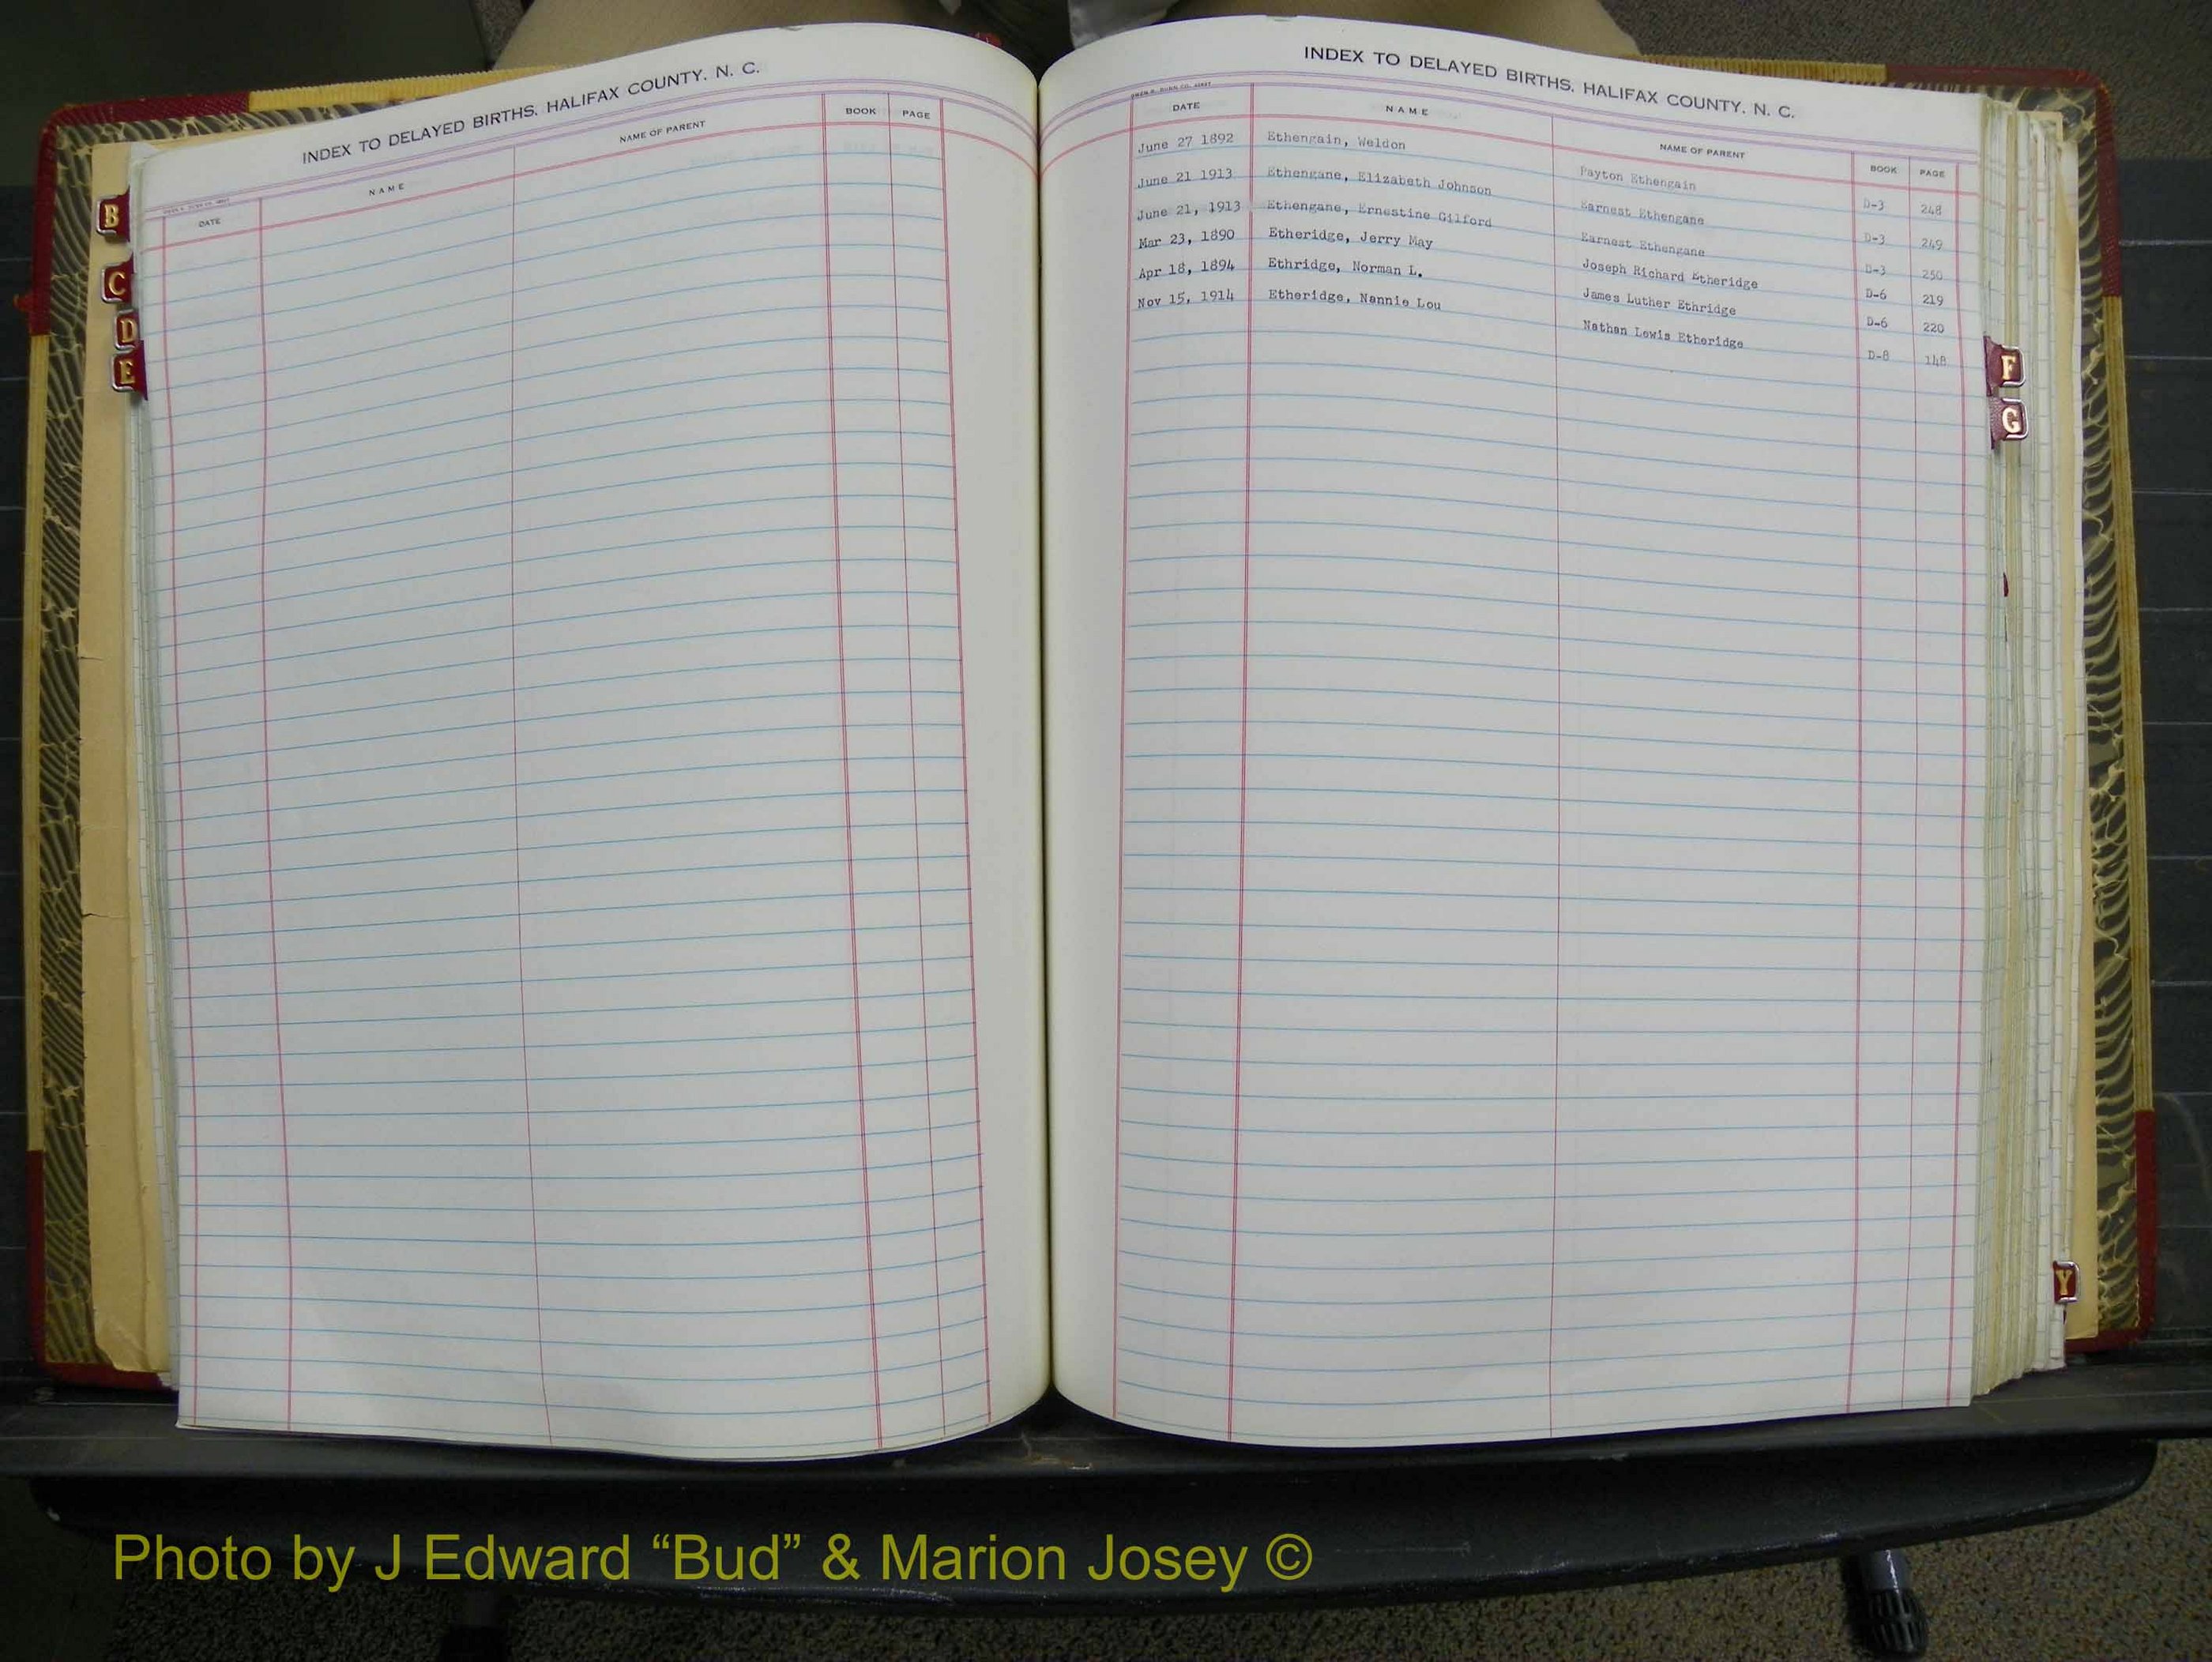 INDEX TO DELAYED BIRTHS, HALIFAX COUNTY, N. C.
DATE NAME NAME OF PARENT BOOK PAGE
B
C
D
E
INDEX TO DELAYED BIRTHS, HALIFAX COUNTY, N. C.
DATE NAME NAME OF PARENT BOOK PAGE
June 27 1892 Ethengain, Weldon Payton Ethengain D-3 248
June 21 1913 Ethengane, Elizabeth Johnson Earnest Ethengane D-3 249
June 21, 1913 Ethengane, Ernestine Gilford Earnest Ethengane D-3 250
Mar 23, 1890 Etheridge, Jerry May Joseph Richard Etheridge D-6 219
Apr 18, 1894 Ethridge, Norman L. James Luther Ethridge D-6 220
Nov 15, 1914 Etheridge, Nannie Lou Nathan Lewis Etheridge D-8 148
F
G
Y
Photo by J Edward “Bud” & Marion Josey ©